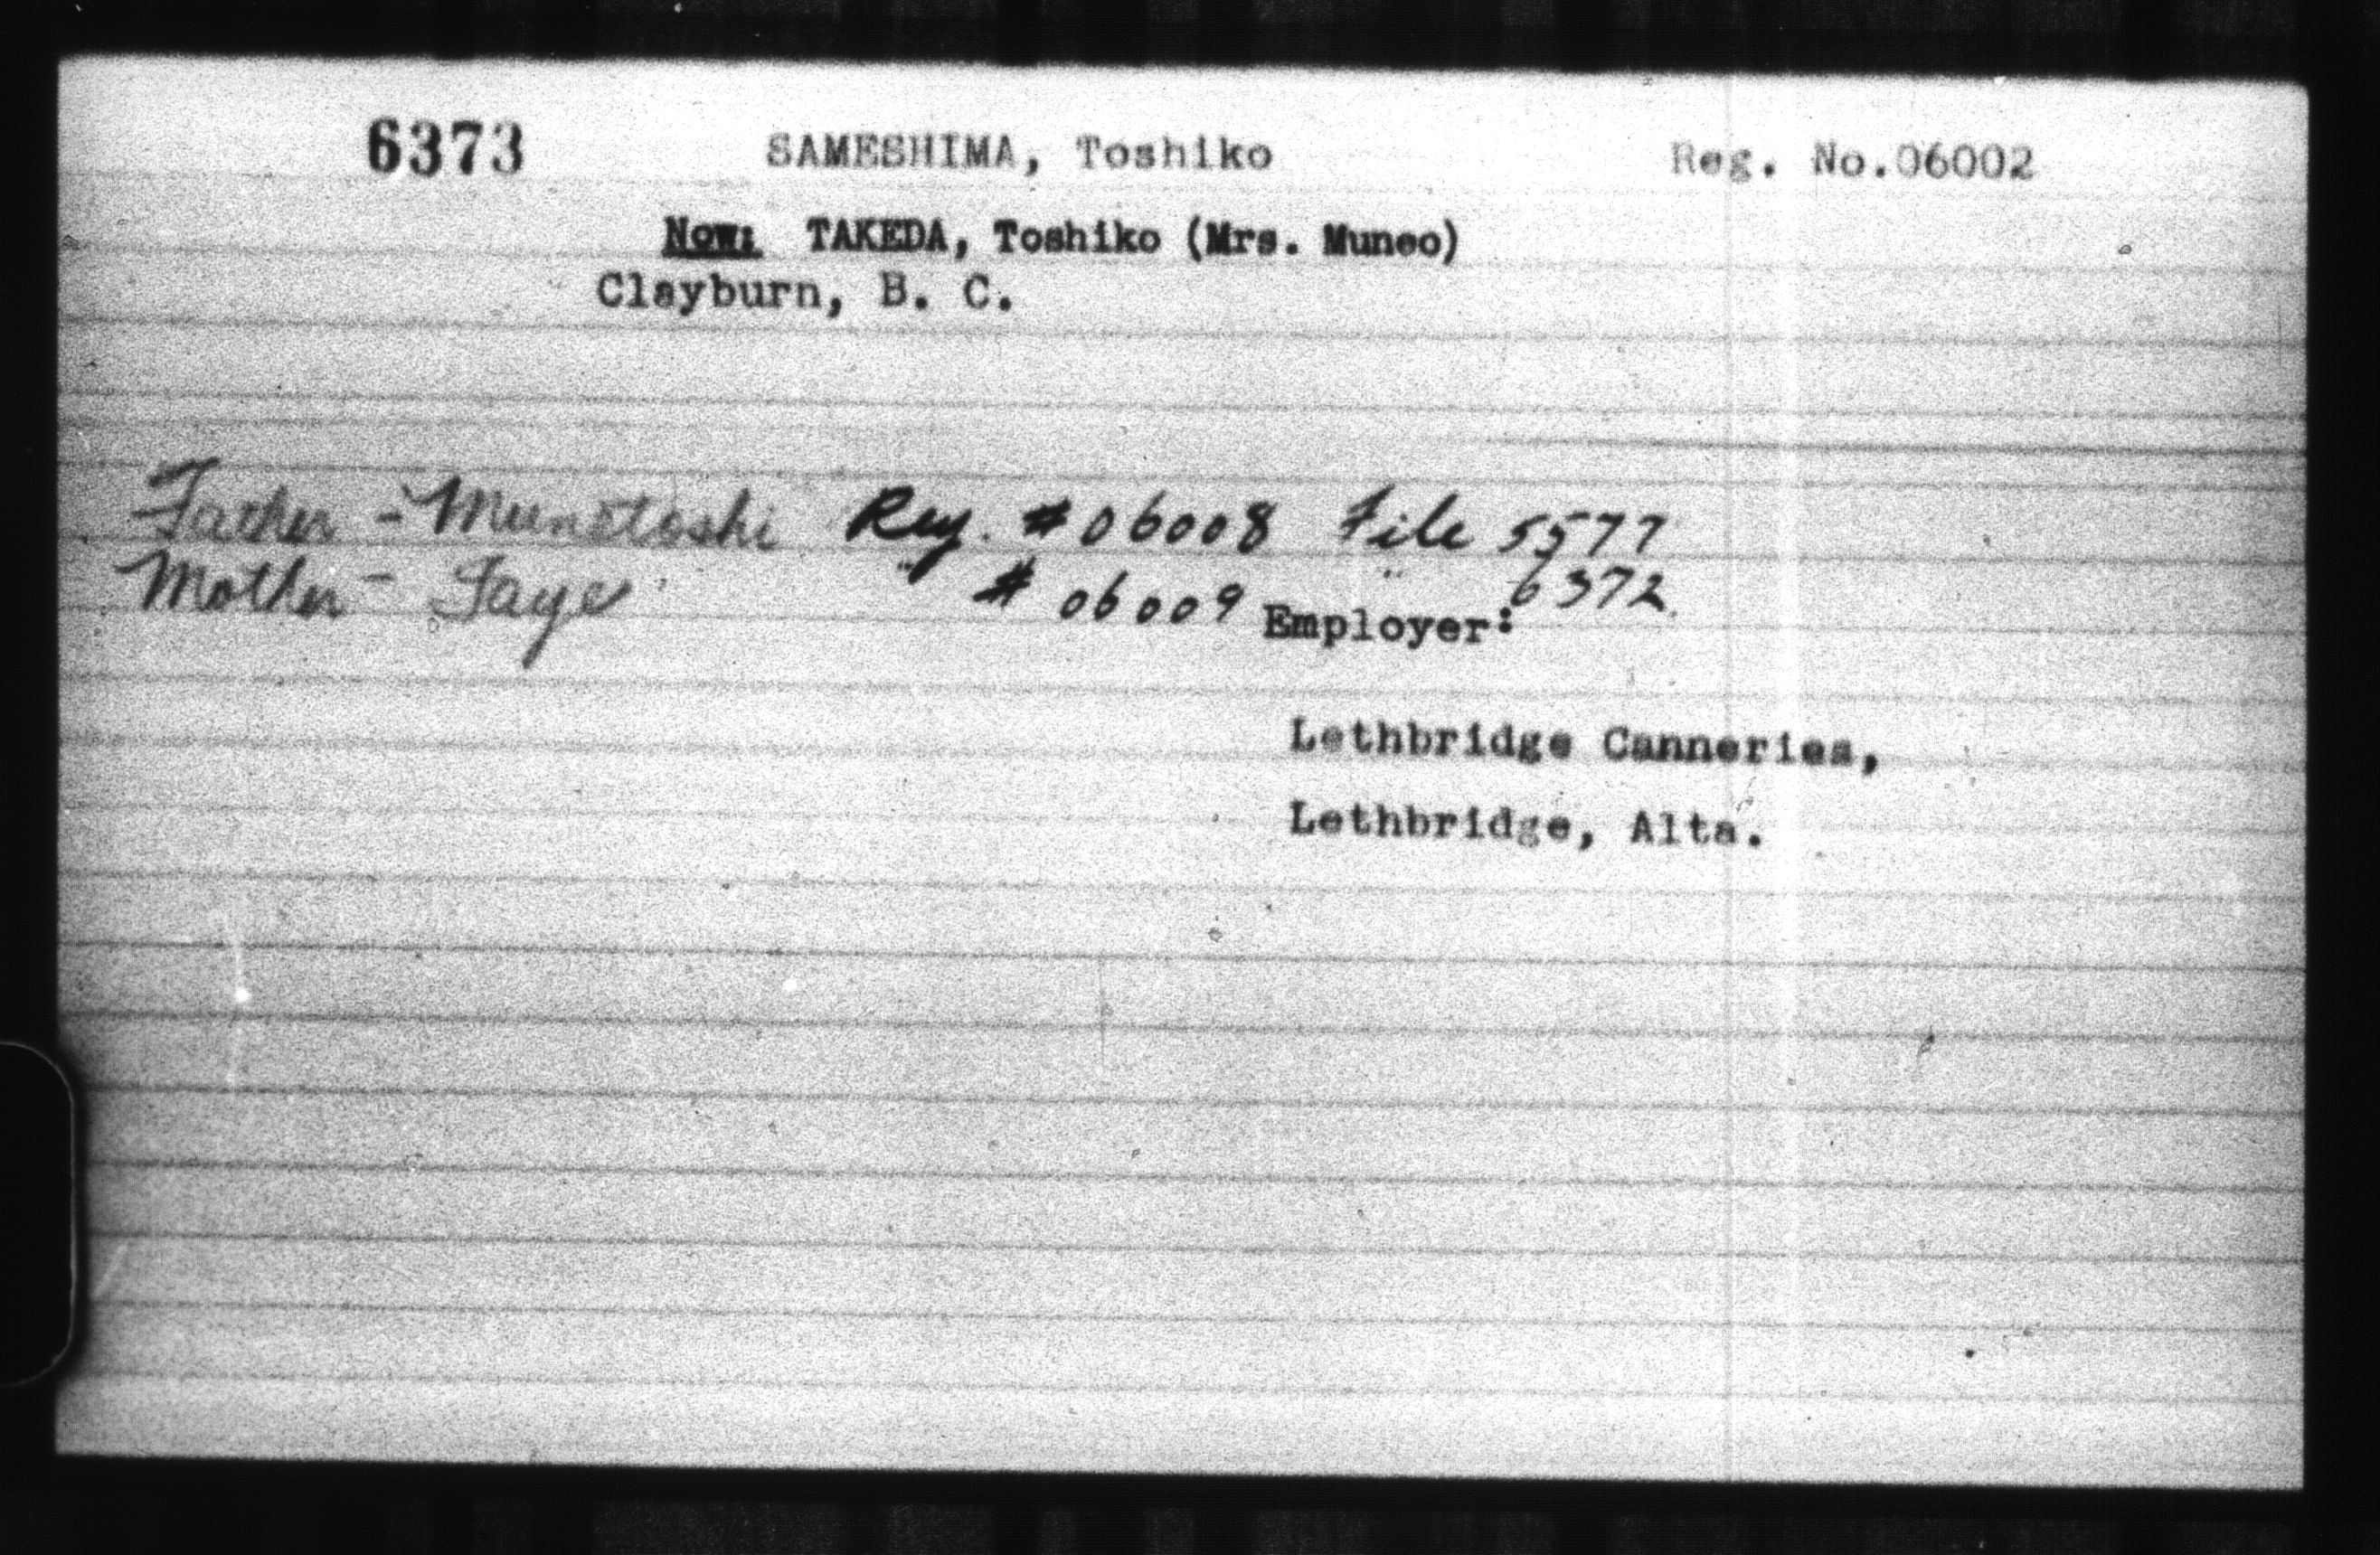 6373 SAMESHIMA, Toshiko Reg. No.06002
Now: TAKEDA, Toshiko (Mrs. Muneo)
Clayburn, B. C.
Father - Munetoshi Reg. #06008 File 5577
Mother - Faye " # 06009 " 6372
Employer:
Lethbridge Canneries,
Lethbridge, Alta.